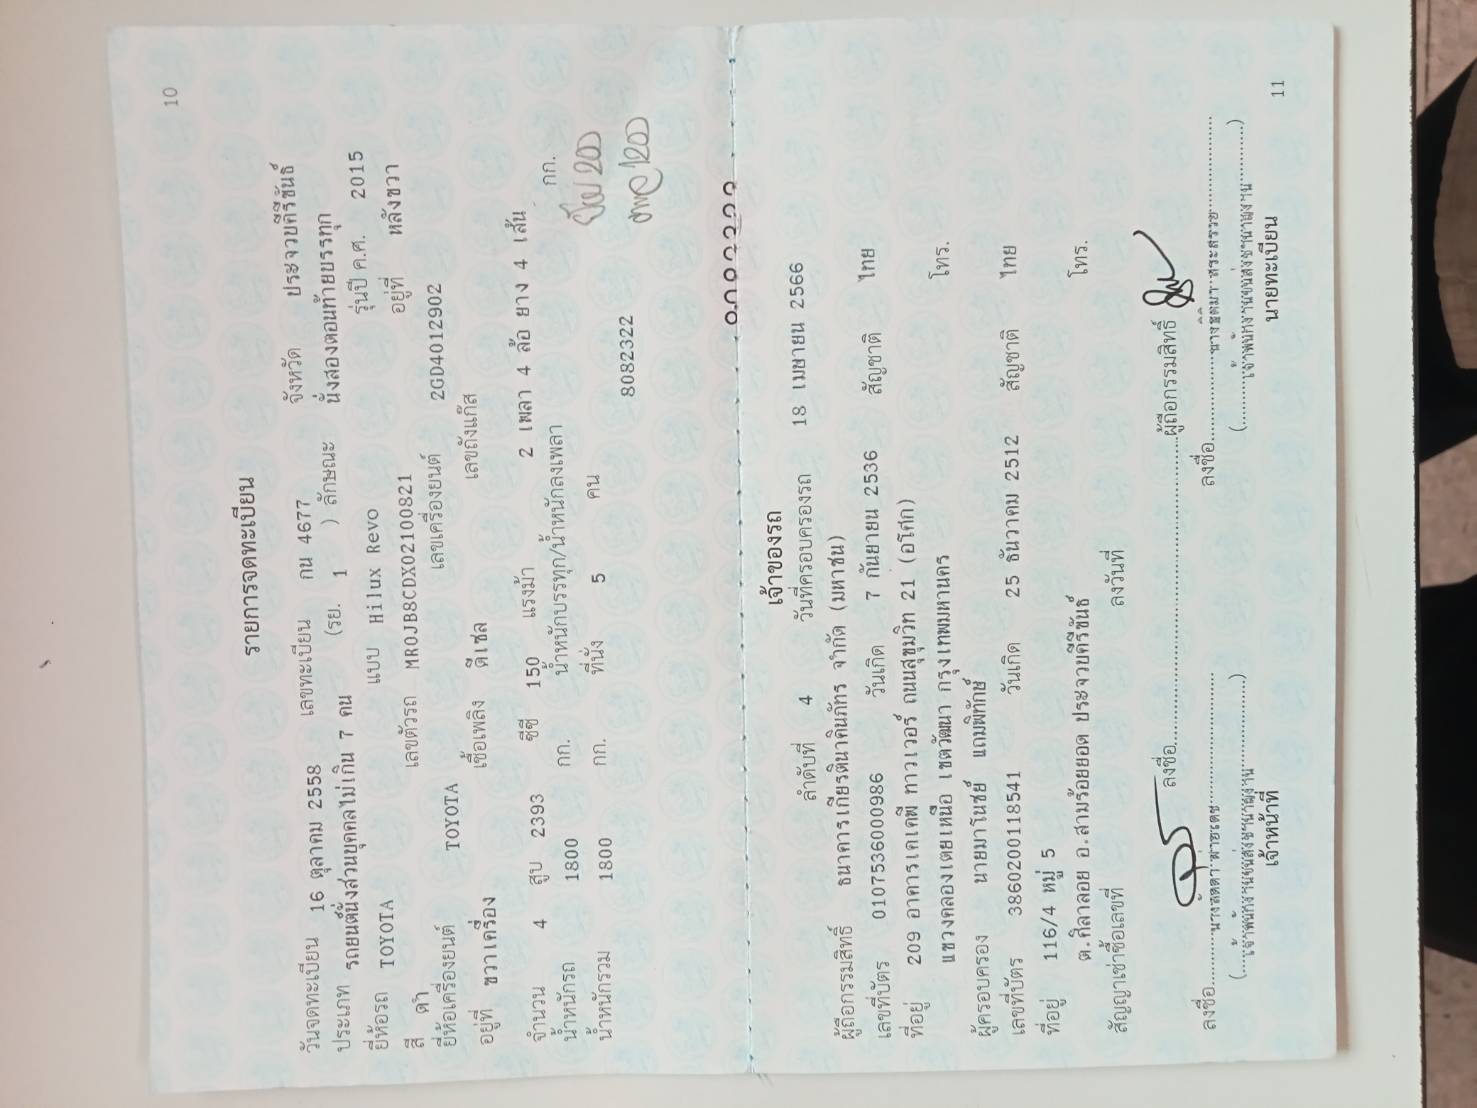 10
รายการจดทะเบียน
วันจดทะเบียน 16 ตุลาคม 2558 เลขทะเบียน กน 4677 จังหวัด ประจวบคีรีขันธ์
ประเภท รถยนต์นั่งส่วนบุคคลไม่เกิน 7 คน (รย. 1 ) ลักษณะ นั่งสองตอนท้ายบรรทุก
ยี่ห้อรถ TOYOTA แบบ Hilux Revo รุ่นปี ค.ศ. 2015
สี ดำ เลขตัวรถ MR0JB8CDX02100821 อยู่ที่ หลังขวา
ยี่ห้อเครื่องยนต์ TOYOTA เลขเครื่องยนต์ 2GD4012902
อยู่ที่ ขวาเครื่อง เชื้อเพลิง ดีเซล เลขถังแก๊ส
จำนวน 4 สูบ 2393 ซีซี 150 แรงม้า 2 เพลา 4 ล้อ ยาง 4 เส้น
น้ำหนักรถ 1800 กก. น้ำหนักบรรทุก/น้ำหนักลงเพลา กก.
น้ำหนักรวม 1800 กก. ที่นั่ง 5 คน
8082322
เจ้าของรถ
ลำดับที่ 4 วันที่ครอบครองรถ 18 เมษายน 2566
ผู้ถือกรรมสิทธิ์ ธนาคารเกียรตินาคินภัทร จำกัด (มหาชน)
เลขที่บัตร 0107536000986 วันเกิด 7 กันยายน 2536 สัญชาติ ไทย
ที่อยู่ 209 อาคารเคเคพี ทาวเวอร์ ถนนสุขุมวิท 21 (อโศก)
แขวงคลองเตยเหนือ เขตวัฒนา กรุงเทพมหานคร โทร.
ผู้ครอบครอง นายมาโนชย์ แถมพิทักษ์
เลขที่บัตร 3860200118541 วันเกิด 25 ธันวาคม 2512 สัญชาติ ไทย
ที่อยู่ 116/4 หมู่ 5
ต.ศิลาลอย อ.สามร้อยยอด ประจวบคีรีขันธ์ โทร.
สัญญาเช่าซื้อเลขที่ ลงวันที่
ลงชื่อ ผู้ถือกรรมสิทธิ์
ลงชื่อ ลงชื่อ
(เจ้าพนักงานขนส่งชำนาญงาน) (เจ้าพนักงานขนส่งชำนาญงาน)
เจ้าหน้าที่ นายทะเบียน
11